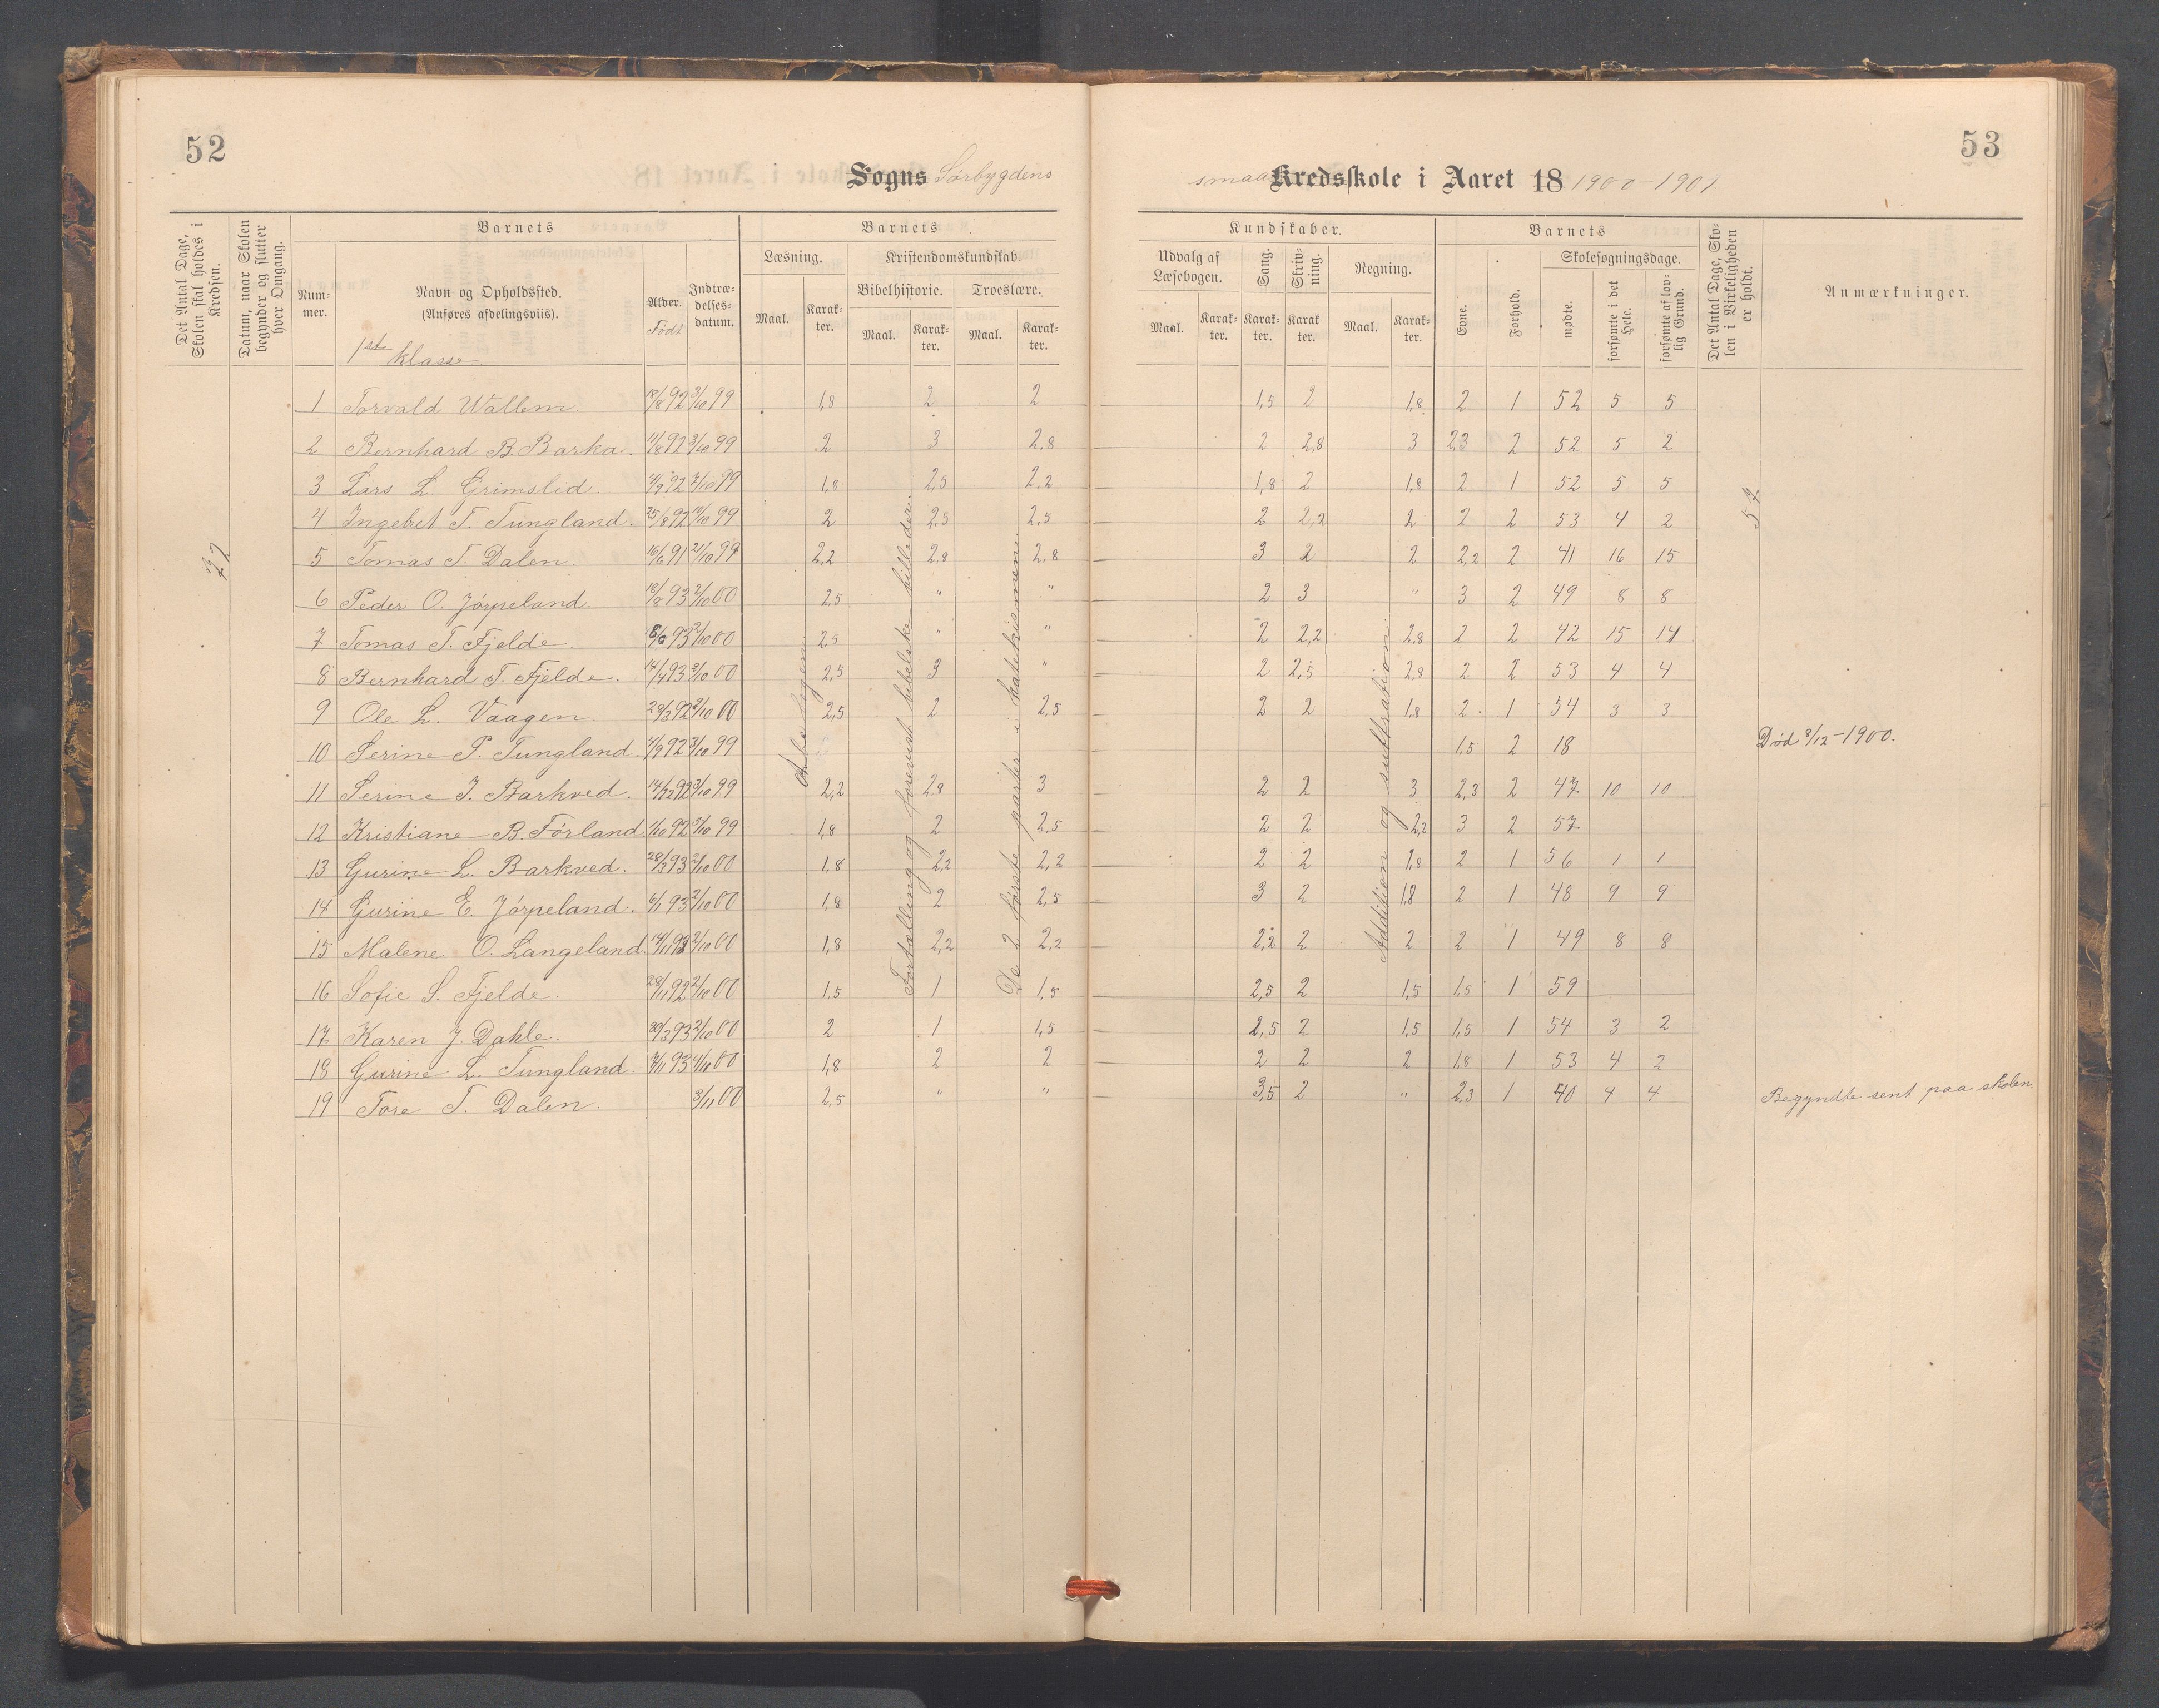 52
53
Sogns Sørbygdens smaa Kredsskole i Aaret 18 1900-1901.
Det Antal Dage, Skolen skal holdes i Kredsen.
Datum, naar Skolen begynder og slutter hver Omgang.
Barnets
Num-mer.
Navn og Opholdssted.
(Anføres afdelingsviis).
1ste klasse
Alder.
Født
Indtræ-delses-datum.
Barnets
Læsning.
Maal.
Karak-ter.
Kristendomskundskab.
Bibelhistorie.
Maal.
Karak-ter.
Troeslære.
Maal.
Karak-ter.
Kundskaber.
Udvalg af Læsebogen.
Maal.
Karak-ter.
Sang.
Karak-ter.
Skriv-ning.
Karak-ter.
Regning.
Maal.
Karak-ter.
Barnets
Evne.
Forhold.
Skolesøgningsdage.
mødte.
forsømte i det Hele.
forsømte af lov-lig Grund.
Det Antal Dage, Sko-len i Virkeligheden er holdt.
Anmærkninger.
72
57
Fortælling og forevist bibelske billeder.
De 2 første parter i katekismen.
Addition og subtraktion.
1 Torvald Wallem 18/8 92 3/10 99 1,8 2 2 1,5 2 1,8 2 1 52 5 5
2 Bernhard B. Barka. 11/8 92 3/10 99 2 3 2,8 2 2,8 3 2,3 2 52 5 2
3 Lars L. Grimslid. 4/9 92 7/10 99 1,8 2,5 2,2 1,8 2 1,8 2 1 52 5 5
4 Ingebet T. Tungland. 25/8 92 14/10 99 2 2,5 2,5 2 2,2 2 2 2 53 4 2
5 Tomas T. Dalen. 16/6 91 21/10 99 2,2 2,8 2,8 3 2 2 2,2 2 41 16 15
6 Peder O. Jørpeland. 18/8 93 2/10 00 2,5 " " 2 3 " 3 2 49 8 8
7 Tomas T. Fjelde. 8/6 93 2/10 00 2,5 " " 2 2,2 2,8 2 2 42 15 14
8 Bernhard T. Fjelde. 14/4 93 2/10 00 2,5 3 " 2 2,5 2,8 2 2 53 4 4
9 Ole L. Vaagen 28/3 92 2/10 00 2,5 2 2,5 2 2 1,8 2 1 54 3 3
10 Serine P. Tungland. 4/9 92 3/10 99 1,5 2 18 Død 8/12-1900.
11 Serine J. Barkved. 14/12 92 3/10 99 2,2 2,8 3 2 2 3 2,3 2 47 10 10
12 Kristiane B. Førland 1/10 92 5/10 99 1,8 2 2,5 2 2 2,2 3 2 57
13 Gurine L. Barkved. 28/3 93 2/10 00 1,8 2,2 2,2 2 2 1,8 2 1 56 1 1
14 Gurine E. Jørpeland. 6/1 93 2/10 00 1,8 2 2,5 3 2 1,8 2 1 48 9 9
15 Malene O. Langeland. 14/11 93 2/10 00 1,8 2,2 2,2 2,2 2 2 2 1 49 8 8
16 Sofie S. Fjelde. 28/11 92 2/10 00 1,5 1 1,5 2,5 2 1,5 1,5 1 59
17 Karen J. Dahle. 30/3 93 2/10 00 2 1 1,5 2,5 2 1,5 1,5 1 54 3 2
18 Gurine L. Tungland. 7/11 93 4/10 00 1,8 2 2 2 2 2 1,8 1 53 4 2
19 Tore T. Dalen. 3/11 00 2,5 " " 3,5 2 " 2,3 1 40 4 4 Begyndte sent paa skolen.